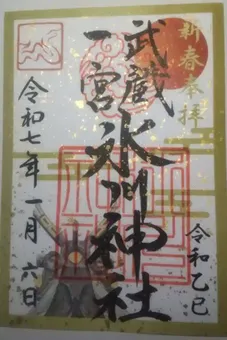 新春奉拝
武蔵一宮
氷川神社
令和乙巳
令和七年一月六日